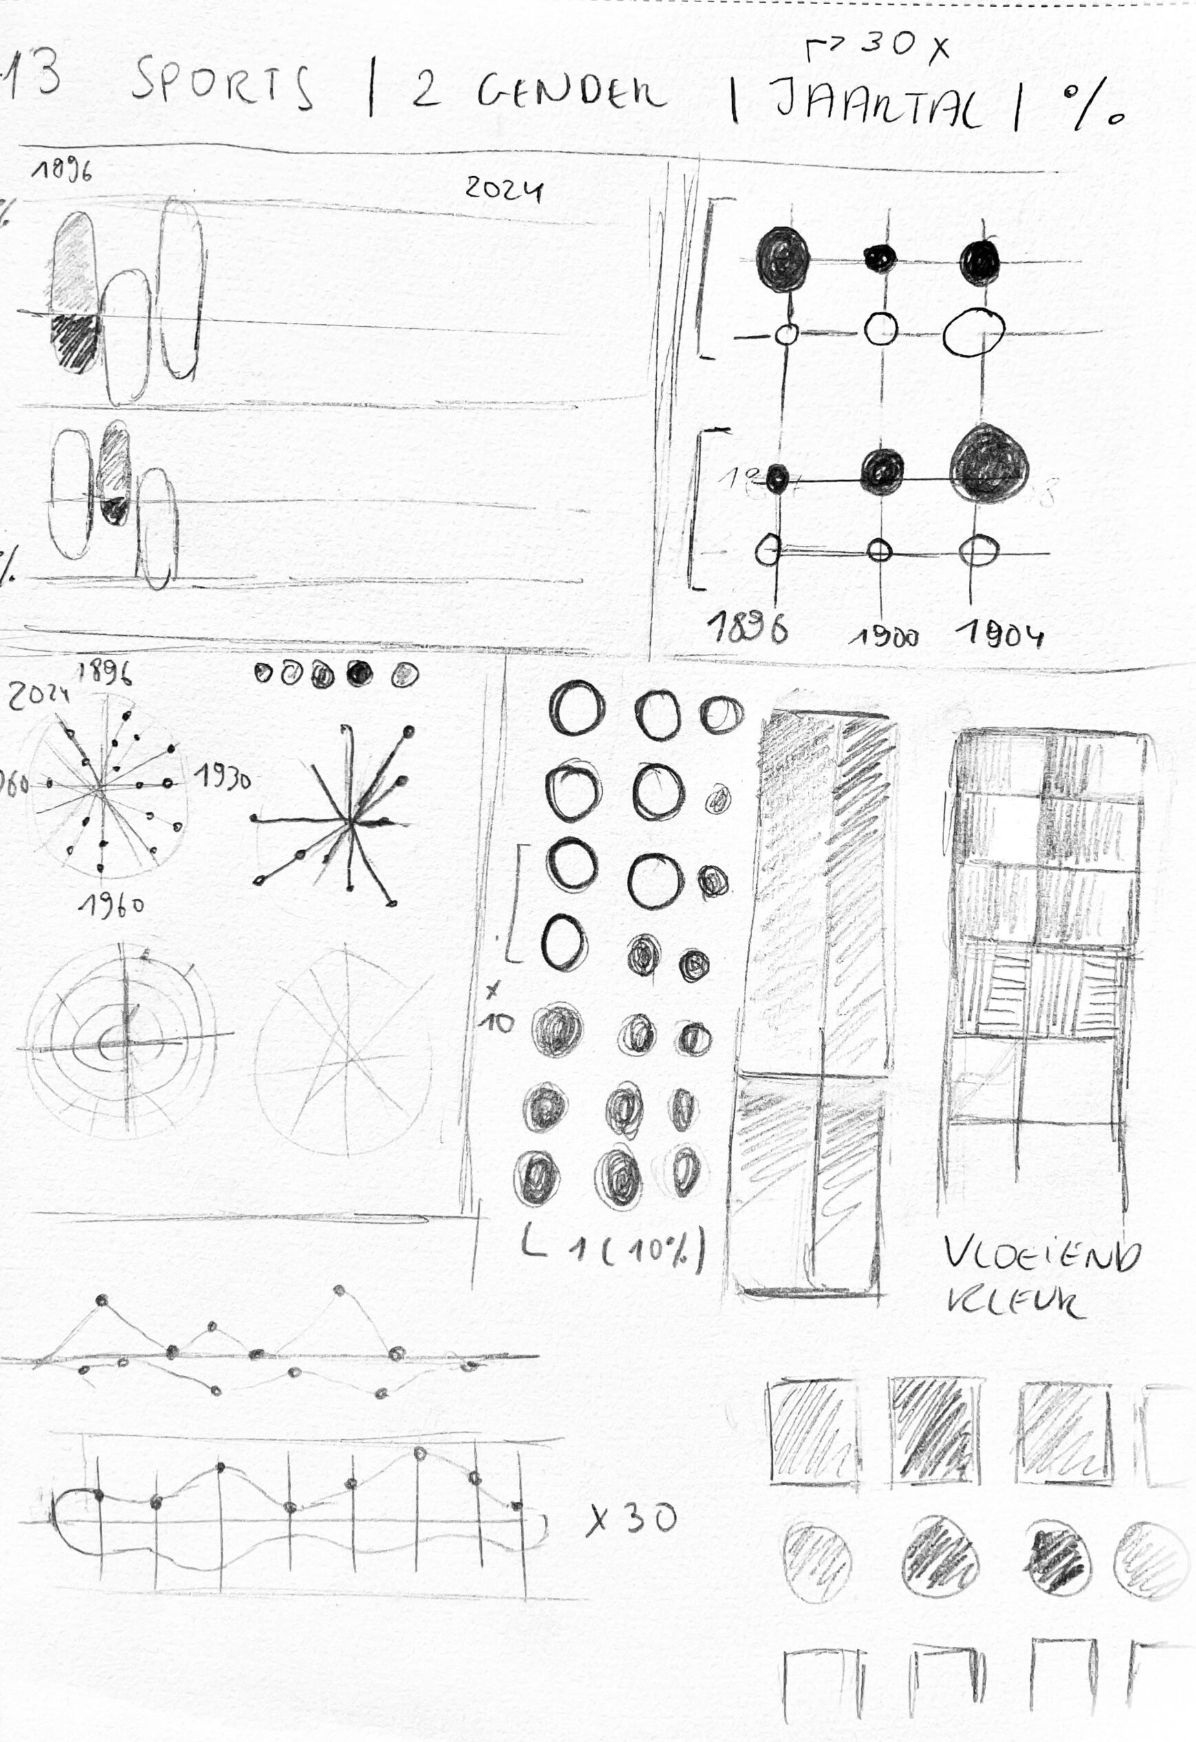 ↱> 30 x
13 SPORTS | 2 GENDER | JAARTAL | %
1896
2024
%
%
1896 1900 1904
1896
2024
1930
1960
x
10
1 (10%)
VLOEIEND
KLEUR
x 30